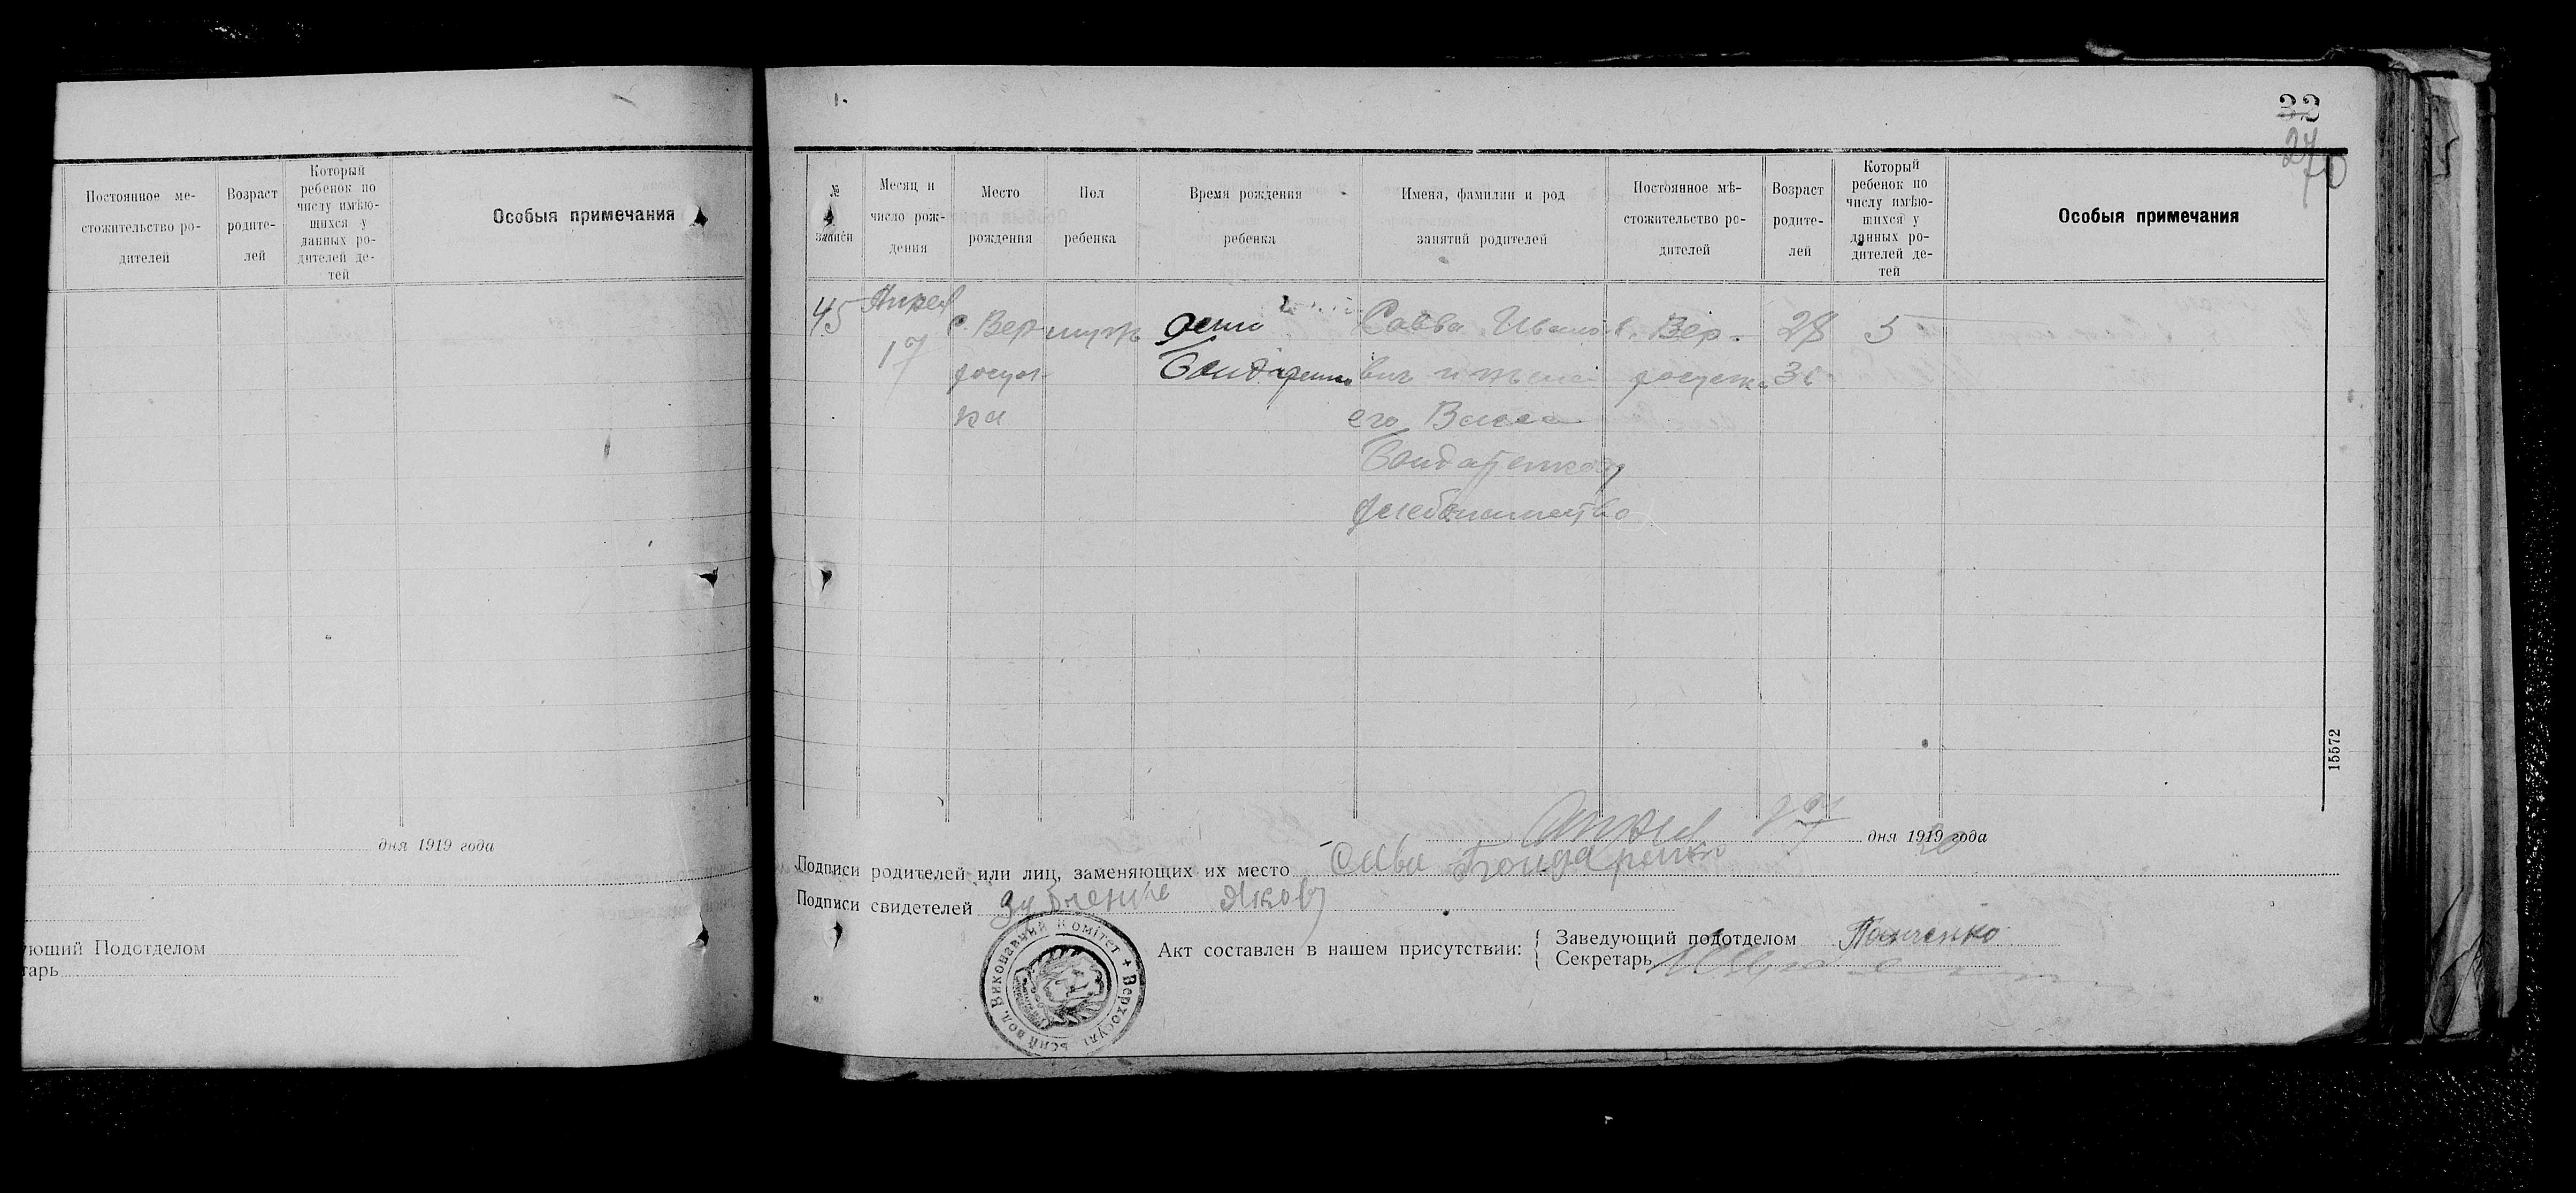 32
27
Постоянное ме-
стожительство ро-
дителей
Возраст
родите-
лей
Который
ребенок по
числу имѣю-
щихся у
данных ро-
дителей де-
тей
Особыя примечания
дня 1919 года
ующий Подотделом
тарь
№
записи
Месяц и
число рож-
дения
Место
рождения
Пол
ребенка
Время рождения
ребенка
Имена, фамилии и род
занятий родителей
Постоянное мѣ-
стожительство ро-
дителей
Возраст
родите-
лей
Который
ребенок по
числу имѣю-
щихся у
данных ро-
дителей де-
тей
Особыя примечания
45
17
с. Вер-
ка
муж
Бондаренко
Савва Ивано
вич и жена
его Васса
Бондаренкова
хлебопашество
с. Вер-
28
5
15572
дня 1919 года
20
Подписи родителей или лиц, заменяющих их место Сава Бондаренко
Подписи свидетелей Яков
Акт составлен в нашем присутствии:
Заведующий подотделом Панченко
Секретарь
вол. Виконавчий Комітет + Верхосул